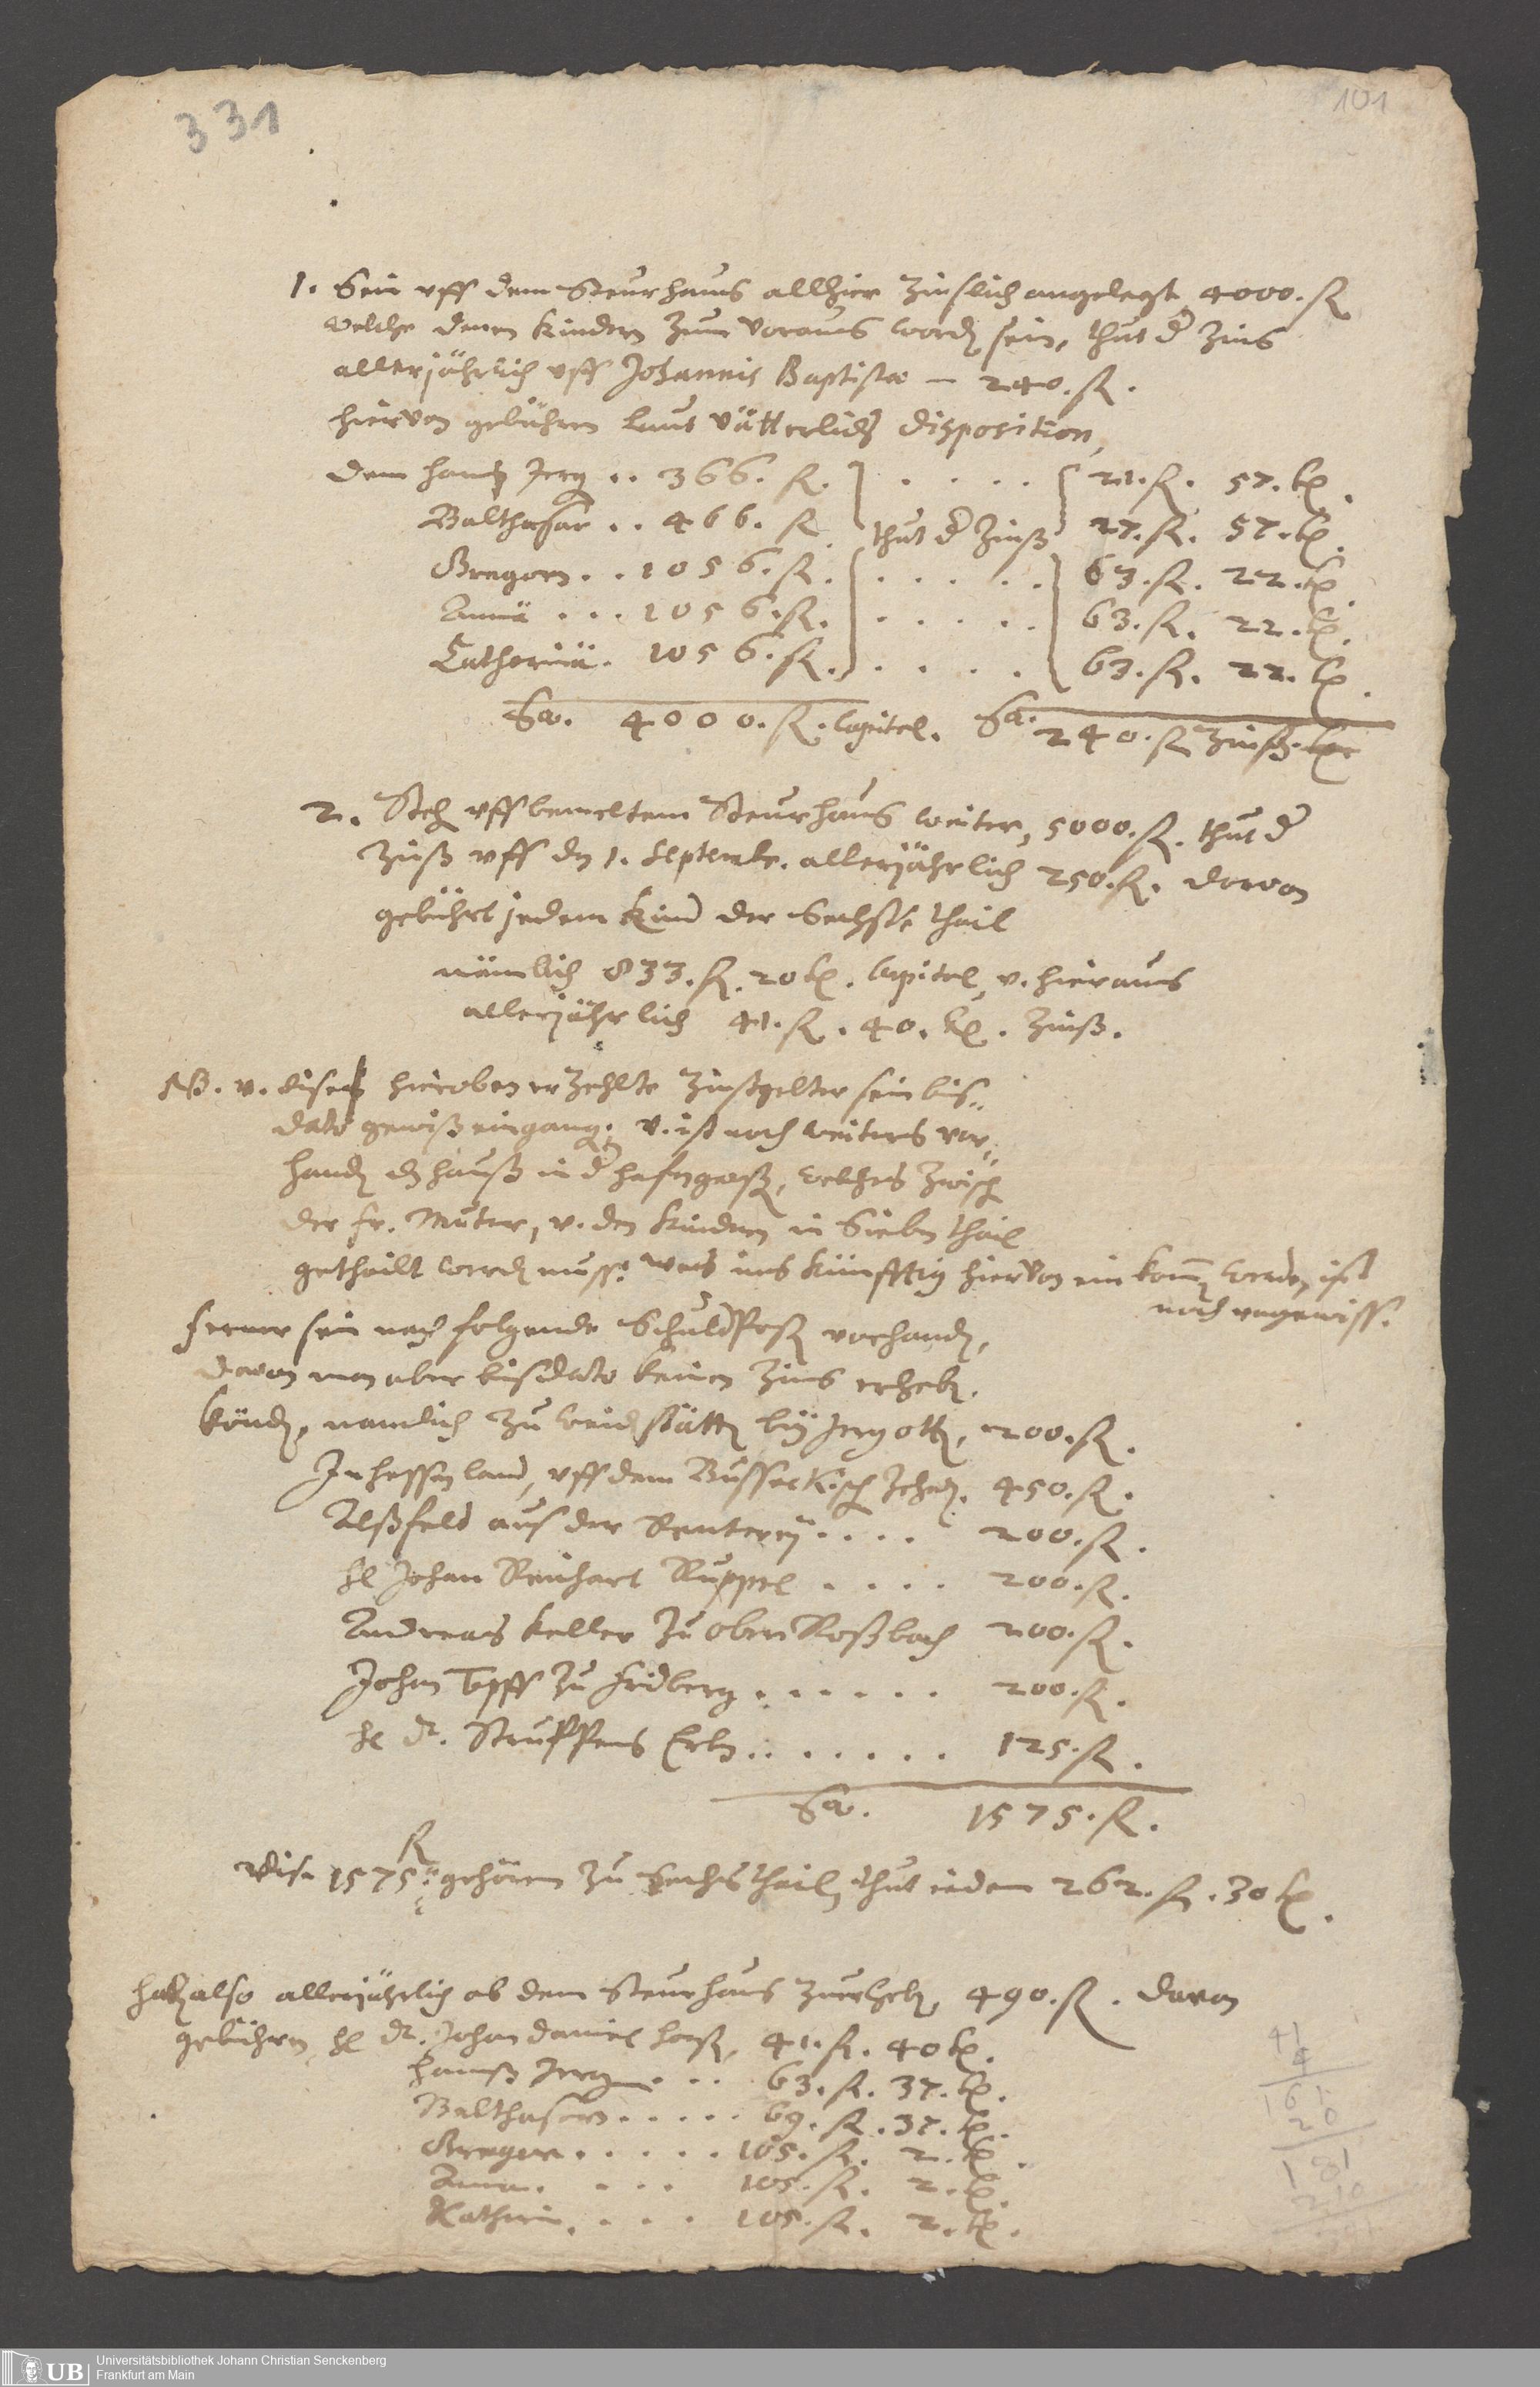 331
101
1. Sein uff dem Steurhaus allhier zinßlich angelegt 4000. fl
welche denen Kindern zum Voraus word sein, thut d Zins
allerjährlich uff Johannis Baptistæ — 240. fl.
hiervon gebühren laut Vätterlich disposition,
dem Hanß Jerg .. 366. fl. . . . . 21. fl. 57. kr.
Balthasar .. 466. fl. thut d Zinß 27. fl. 57. kr.
Gregorn .. 1056. fl. . . . . . 63. fl. 22. kr.
Annä . . . 1056. fl. . . . . . 63. fl. 22. kr.
Catherinä. 1056. fl. . . . . 63. fl. 22. kr.
Sa. 4000. fl. Capitel. Sa. 240. fl Zinß.
2. Steh uff bemeltem Steurhaus weiter, 5000. fl. thut d
Zinß uff den 1. Septemb. allerjährlich 250. fl. darvon
gebührt jedem Kind der Sechste theil
nämlich 833. fl. 20 kr. Capitel, v. hieraus
allerjährlich 41. fl. 40. kr. Zinß.
NB. v. dise hieroben erzehlte Zinßgelter sein bis
dato gewiß eingang. v. ist noch weiters vor
hand dz Hauß in d Hasengaß, welches zwisch
der fr. Muter, v. den Kindern in Sieben theil
getheilt werd muss. was ins künfftig hiervon ein kom werde, ist
noch ungewiss.
ferner sein nach folgende Schuld Post vorhand,
davon man aber bisdato keinen Zins erheb
könd, namlich zu bey Jerg Ott, 200. fl.
In Hessen land, uff dem Busseckisch Zehend. 450. fl.
Alßfeld aus der Renterey . . . . 200. fl.
H Johan Reinhart Ruppel . . . . 200. fl.
Andreas Keller zu Ober Roßbach 200. fl.
Johan Topff zu Fridberg . . . . . . 200. fl.
H Dr. Struppens Erben . . . . . . 125. fl.
Sa. 1575. fl.
fl
Dise 1575. gehören zu Sechs theil, thut iedem 262. fl. 30 kr.
Hab also allerjährlich ab dem Steurhaus zuerheb, 490. fl. davon
gebühren, H Dr. Johan Daniel Horst, 41. fl. 40 kr.
Hanß Jerg . . . 63. fl. 37. kr.
Balthasarn . . . . . 69. fl. 37. kr.
Gregor . . . . . 105. fl. 2. kr.
Anna . . . . 105. fl. 2. kr.
Kathrin . . . . 105. fl. 2. kr.
41
4
161
20
181
210
UB Universitätsbibliothek Johann Christian Senckenberg
Frankfurt am Main